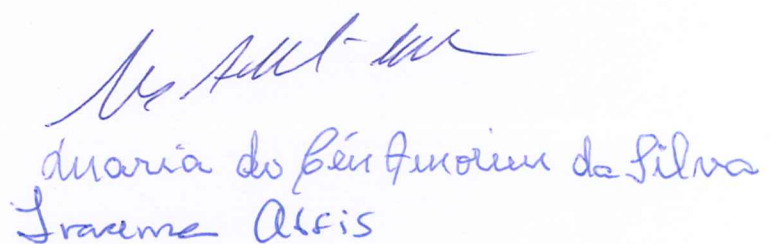 Maria do Céu Amorim da Silva
Iracema Assis